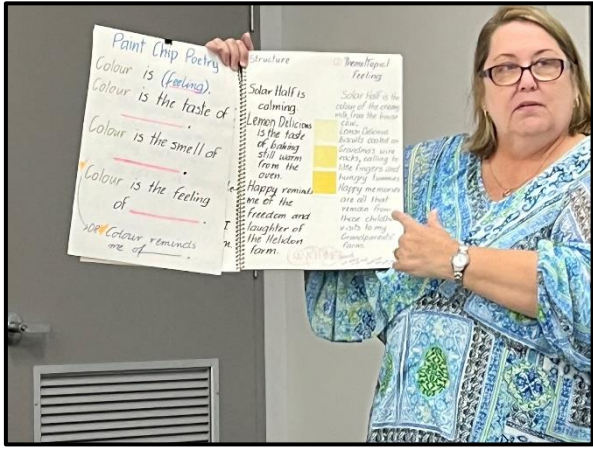 Paint Chip Poetry
Colour is (feeling).
Colour is the taste of
.
Colour is the smell of
.
Colour is the feeling
of .
Colour reminds
me of .
Structure
Solar Half is
calming.
Lemon Delicious
is the taste
of baking
still warm
from the
oven.
Happy reminds
me of the
freedom and
laughter of
the Helidon
farm.
feeling
Solar Half is the
colour of the creamy
milk from the house
cow.
Lemon Delicious
biscuits cooled on
Grandma's wire
racks, calling to
little fingers and
hungry tummies
Happy memories
are all that
remain from
those childhood
visits to my
Grandparents'
farm.